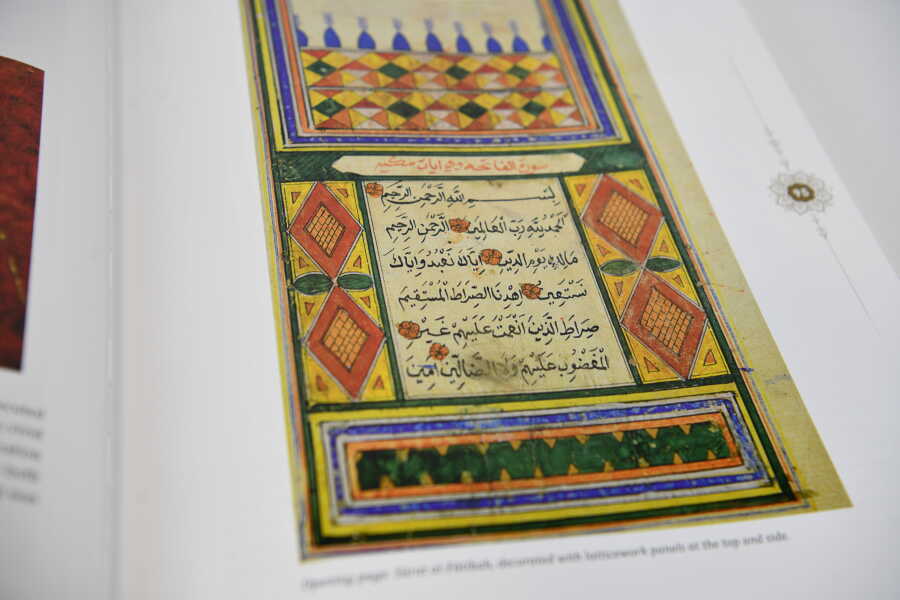 سورة الفاتحة وهي آيات مكية
بِسْمِ اللَّهِ الرَّحْمٰنِ الرَّحِيمِ
الْحَمْدُ لِلَّهِ رَبِّ الْعَالَمِينَ الرَّحْمٰنِ الرَّحِيمِ
مَالِكِ يَوْمِ الدِّينِ إِيَّاكَ نَعْبُدُ وَإِيَّاكَ
نَسْتَعِينُ اهْدِنَا الصِّرَاطَ الْمُسْتَقِيمَ
صِرَاطَ الَّذِينَ أَنْعَمْتَ عَلَيْهِمْ غَيْرِ
الْمَغْضُوبِ عَلَيْهِمْ وَلَا الضَّالِّينَ آمِينَ
Opening page: Sūrat al-Fātiḥah, decorated with latticework panels at the top and side.